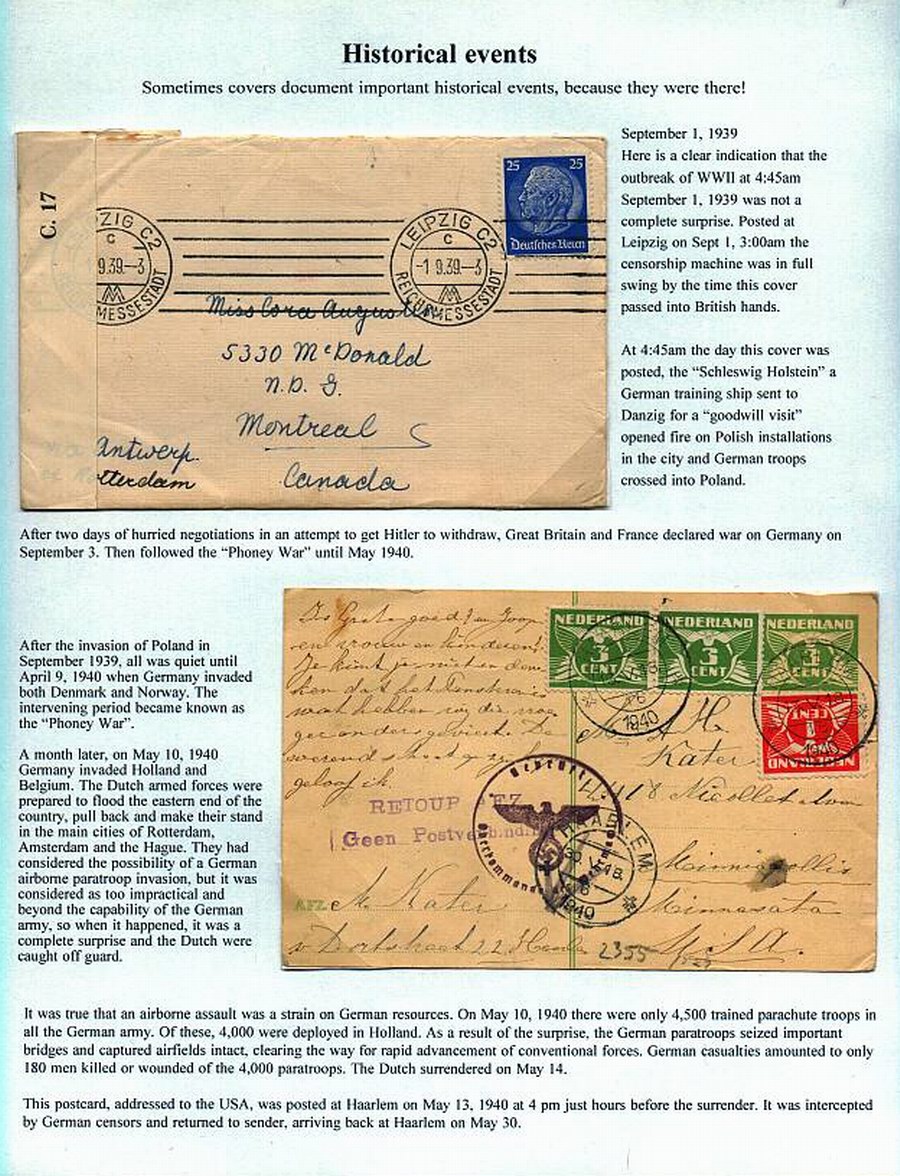 Historical events
Sometimes covers document important historical events, because they were there!
C. 17
ZIG C2
C
9.39.—3
MM
MESSESTADT
LEIPZIG C2
C
-1 9.39.—3
MM
REICHSMESSESTADT
25 25
Deutsches Reich
Miss Cora
5330 McDonald
N.D.G.
Montreal
Canada
Antwerp.
tterdam
September 1, 1939
Here is a clear indication that the
outbreak of WWII at 4:45am
September 1, 1939 was not a
complete surprise. Posted at
Leipzig on Sept 1, 3:00am the
censorship machine was in full
swing by the time this cover
passed into British hands.
At 4:45am the day this cover was
posted, the “Schleswig Holstein” a
German training ship sent to
Danzig for a “goodwill visit”
opened fire on Polish installations
in the city and German troops
crossed into Poland.
After two days of hurried negotiations in an attempt to get Hitler to withdraw, Great Britain and France declared war on Germany on
September 3. Then followed the “Phoney War” until May 1940.
After the invasion of Poland in
September 1939, all was quiet until
April 9, 1940 when Germany invaded
both Denmark and Norway. The
intervening period became known as
the “Phoney War”.
A month later, on May 10, 1940
Germany invaded Holland and
Belgium. The Dutch armed forces were
prepared to flood the eastern end of the
country, pull back and make their stand
in the main cities of Rotterdam,
Amsterdam and the Hague. They had
considered the possibility of a German
airborne paratroop invasion, but it was
considered as too impractical and
beyond the capability of the German
army, so when it happened, it was a
complete surprise and the Dutch were
caught off guard.
NEDERLAND
3
CENT
NEDERLAND
3
CENT
NEDERLAND
3
CENT
NEDERLAND
1
CENT
1940
1940
Kater
Nicollet
Minnesota
U.S.A.
RETOUR
Geen Postverbinding
Oberkommando
HAARLEM
1940
AFZ.
Kater
22
2355
It was true that an airborne assault was a strain on German resources. On May 10, 1940 there were only 4,500 trained parachute troops in
all the German army. Of these, 4,000 were deployed in Holland. As a result of the surprise, the German paratroops seized important
bridges and captured airfields intact, clearing the way for rapid advancement of conventional forces. German casualties amounted to only
180 men killed or wounded of the 4,000 paratroops. The Dutch surrendered on May 14.
This postcard, addressed to the USA, was posted at Haarlem on May 13, 1940 at 4 pm just hours before the surrender. It was intercepted
by German censors and returned to sender, arriving back at Haarlem on May 30.